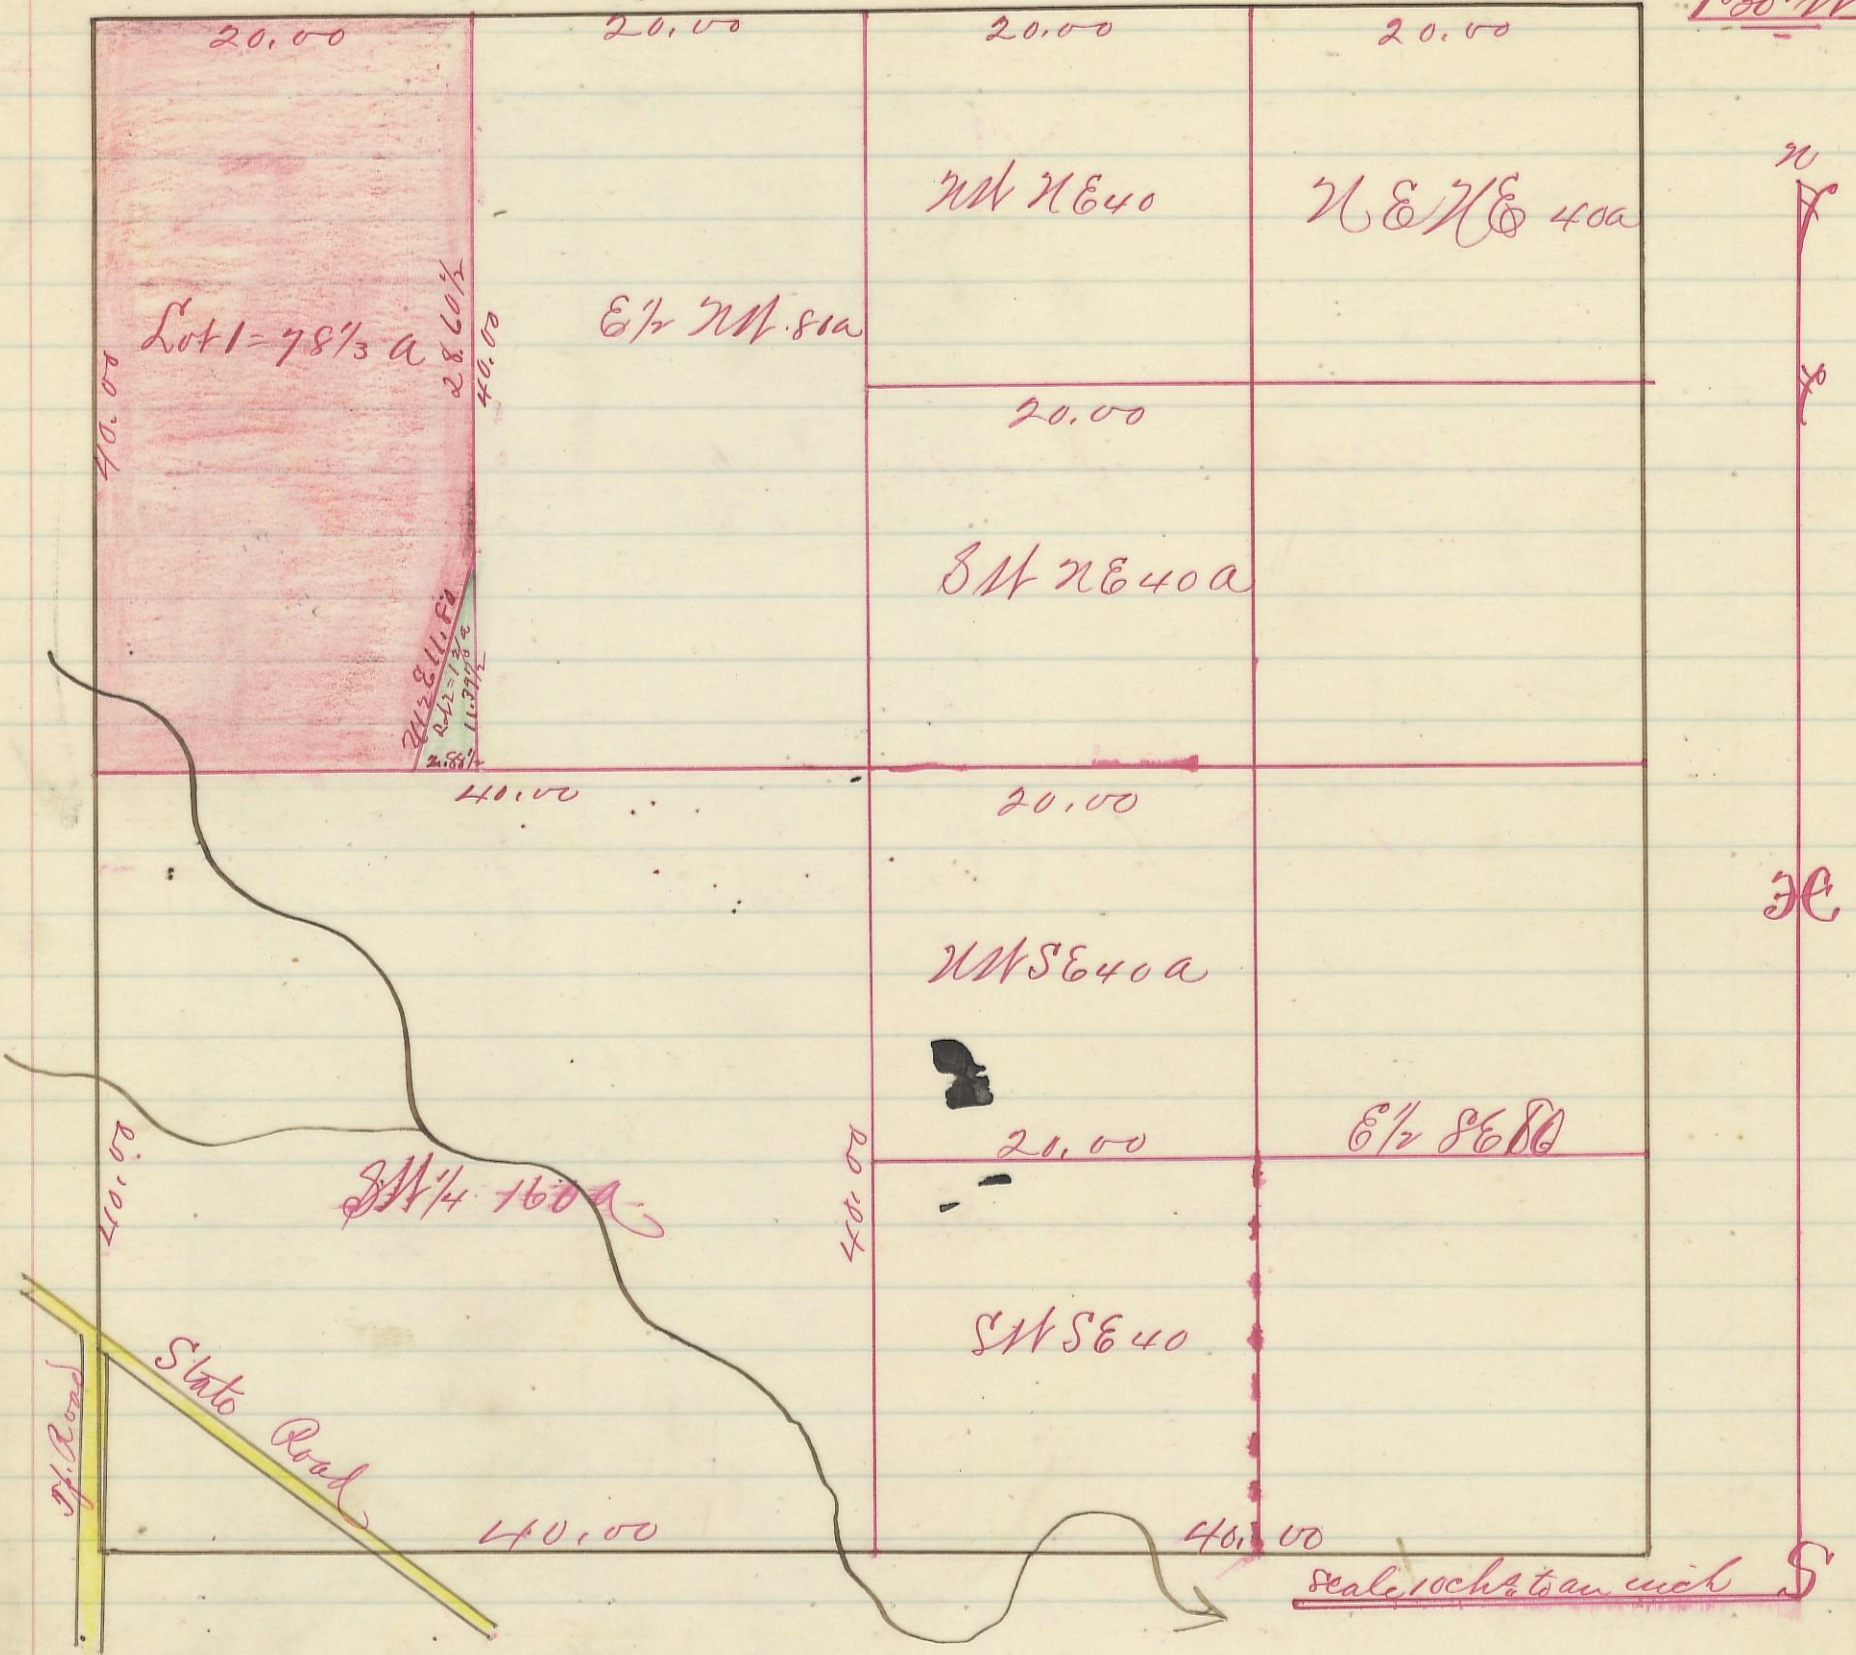 20.00
20.00
20.00
20.00
n
NW NE40
NE NE 40a
Lot 1 = 78 1/3 a
28.60 1/2
40.00
E 1/2 NW. 80a
40.00
20.00
SW NE 40 a
E 11.80
Lot 2 = 1 2/3 a
11.39 1/2
2.88 1/2
40.00
20.00
NW SE 40 a
20.00
E 1/2 SE 80
40.00
SW 1/4 160 a
40.00
SW SE 40
State Road
Tp. Road
40.00
40.00
Scale 10 chs. to an inch
S